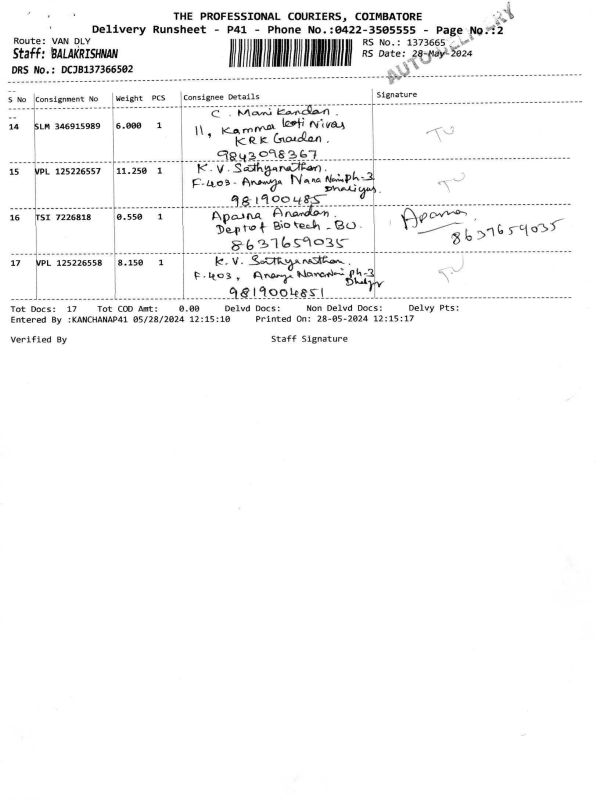 THE PROFESSIONAL COURIERS, COIMBATORE
Delivery Runsheet - P41 - Phone No.:0422-3505555 - Page No.:2
AUTO DELIVERY
Route: VAN DLY
RS No.: 1373665
Staff: BALAKRISHNAN
RS Date: 28-May-2024
DRS No.: DCJB137366502
S No Consignment No Weight PCS Consignee Details Signature
14 SLM 346915989 6.000 1 C. Manikandan.
11, Kamma Koti Nivas
KRK Garden.
9843098367
TU
15 VPL 125226557 11.250 1 K. V. Sathyanathan,
F-403- Ananya Nana Nani ph-3
981900485
TU
16 TSI 7226818 0.550 1 Aparna Anandan.
Dept of Biotech - BU.
8637659035
Aparna
8637659035
17 VPL 125226558 8.150 1 K. V. Sathyanathan.
F-403, Ananya NanaNani ph-3
9819004851
TU
Tot Docs: 17 Tot COD Amt: 0.00 Delvd Docs: Non Delvd Docs: Delvy Pts:
Entered By :KANCHANAP41 05/28/2024 12:15:10 Printed On: 28-05-2024 12:15:17
Verified By Staff Signature